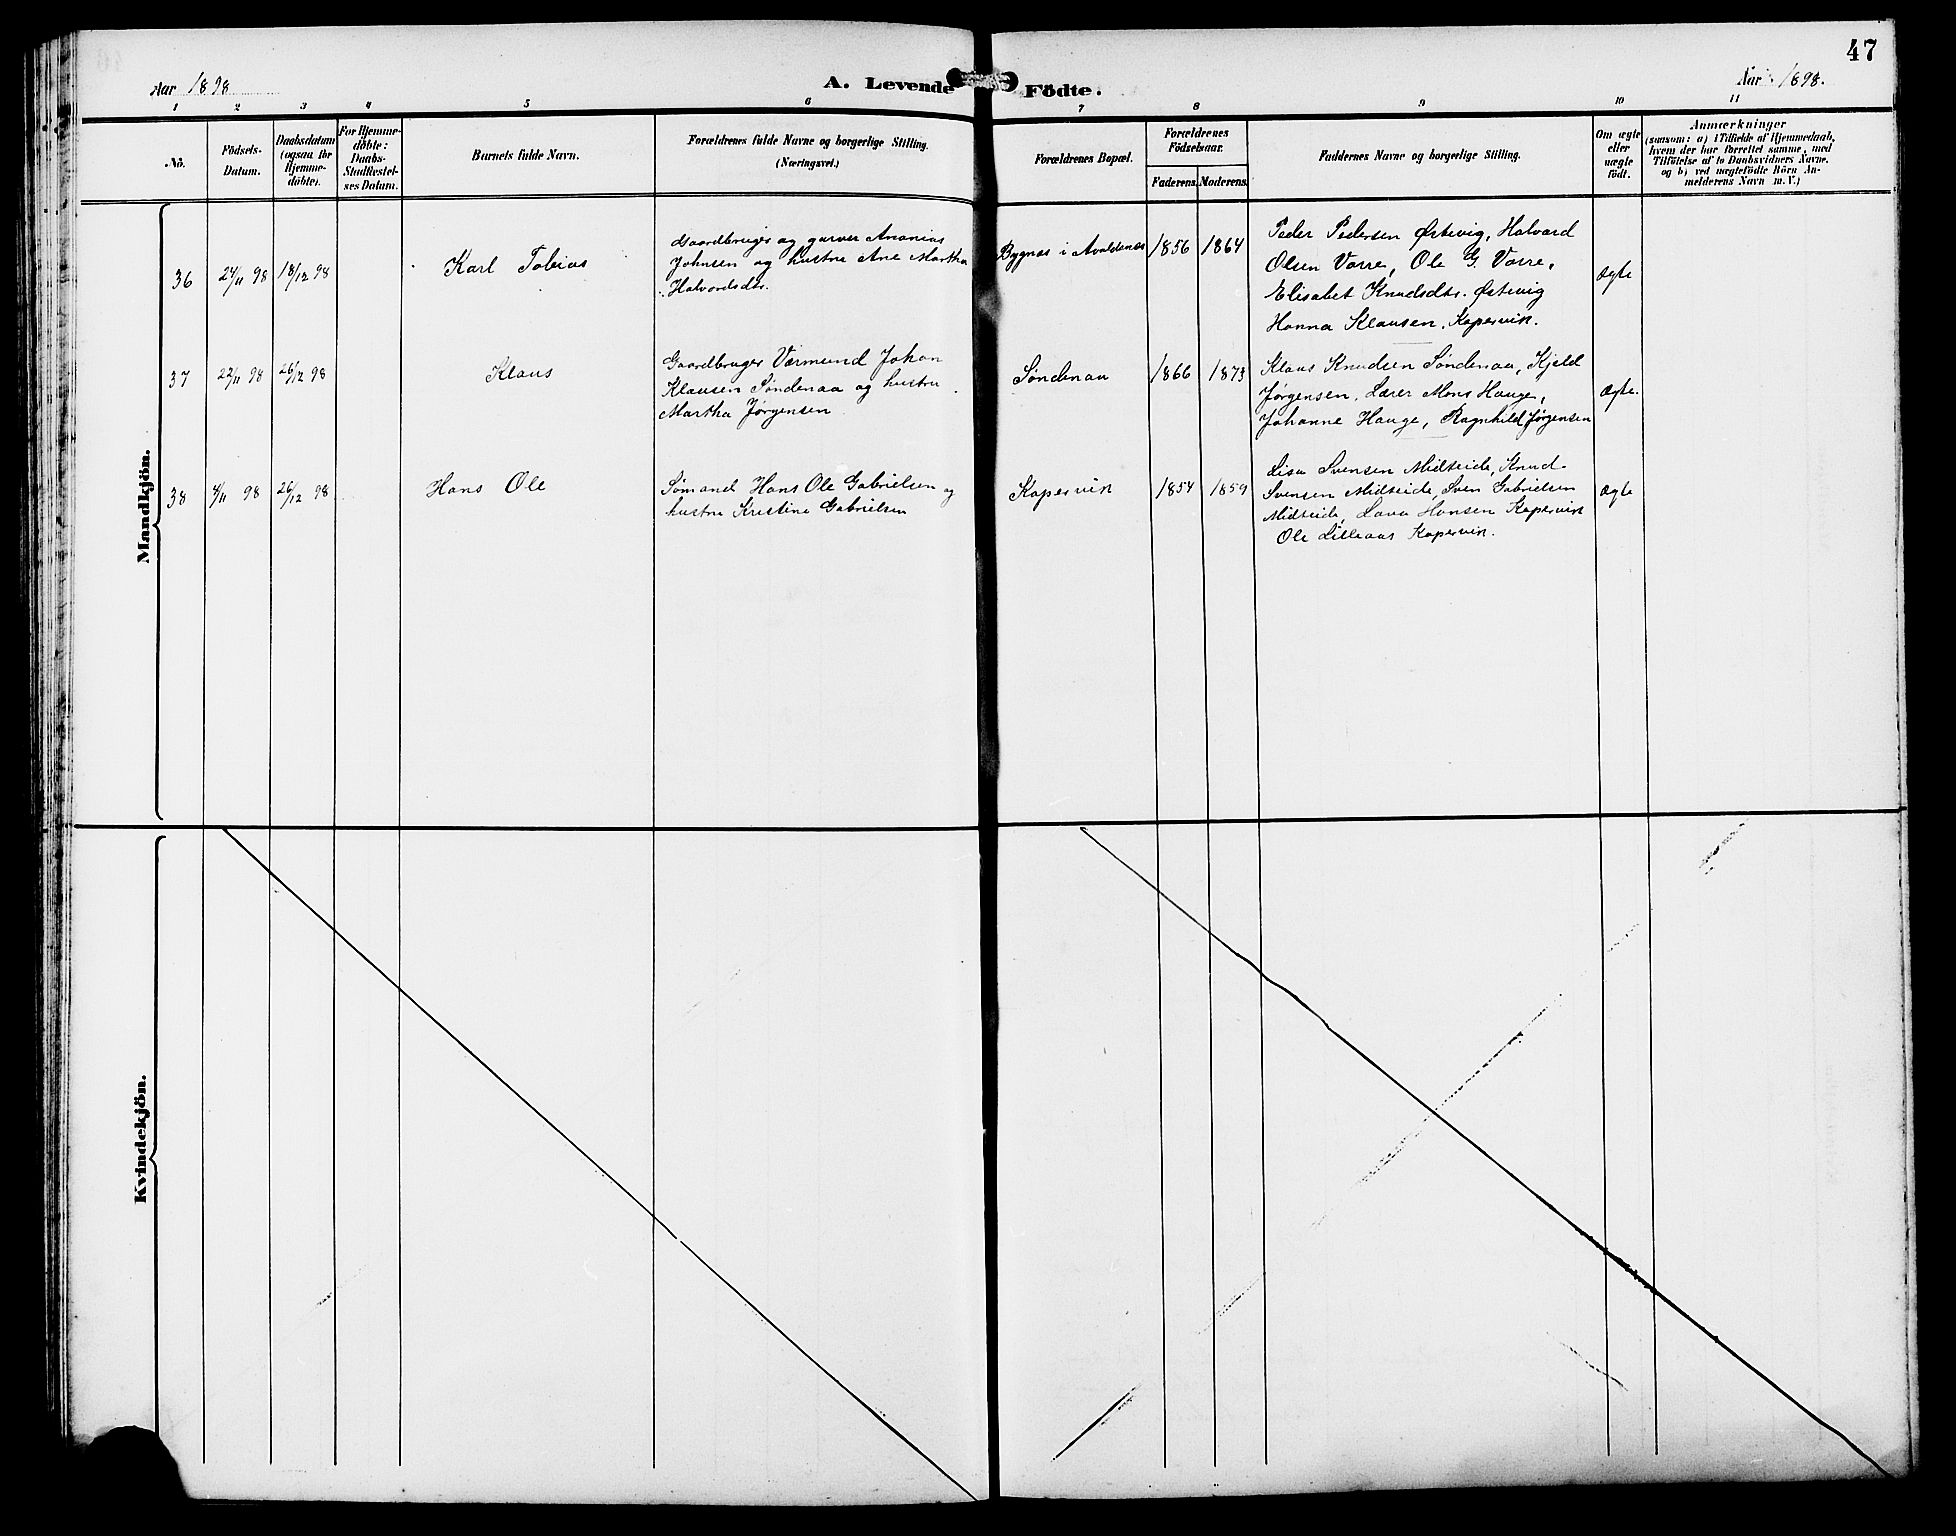 47
Aar 1898
A. Levende Födte.
Aar 1898.
1 2 3 4 5 6 7 8 9 10 11
No.
Födsels-
Datum.
Daabsdatum
(ogsaa for
Hjemme-
döbte).
For Hjemme-
döbte:
Daabs-
Stadfæstel-
ses Datum.
Barnets fulde Navn.
Forældrenes fulde Navne og borgerlige Stilling.
(Næringsvei.)
Forældrenes Bopæl.
Forældrenes
Födselsaar.
Faderens. Moderens.
Faddernes Navne og borgerlige Stilling.
Om ægte
eller
uægte
födt.
Anmærkninger
(saasom: a) i Tilfælde af Hjemmedaab,
hvem der har forrettet samme, med
Tilföielse af to Daabsvidners Navne,
og b) ved uægtefödte Börn An-
melderens Navn m. V.)
Mandkjön.
36 24/11 98 18/12 98
Karl Tobias
Gaardbruger og garver Ananias
Johnsen og hustru Ane Martha
Halvordsdtr.
Bygnes i Avaldsnes
1856 1864
Peder Pedersen Østevig, Halvard
Olsen Vorre, Ole G. Vorre,
Elisabet Knudsdtr. Østevig
Hanna Klausen, Kopervik.
ægte
37 22/11 98 26/12 98
Klaus
Gaardbruger Værmund Johan
Klausen Søndenaa og hustru
Martha Jørgensen
Søndenaa
1866 1873
Klaus Knudsen Søndenaa, Kjeld
Jørgensen, Lærer Mons Hauge,
Johanne Hauge, Ragnhild Jørgensen
Ægte.
38 4/11 98 26/12 98
Hans Ole
Sømand Hans Ole Gabrielsen og
hustru Kristine Gabrielsen
Kopervik
1854 1859
Lisa Svensen Midteide, Knud
Svensen Midteide, Sven Gabrielsen
Midteide, Lava Hansen Kopervik
Ole Lilleaas Kopervik.
Ægte
Kvindekjön.